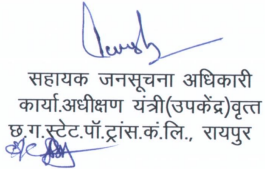 सहायक जनसूचना अधिकारी
कार्या.अधीक्षण यंत्री(उपकेंद्र)वृत्त
छ.ग.स्टेट.पॉ.ट्रांस.कं.लि., रायपुर